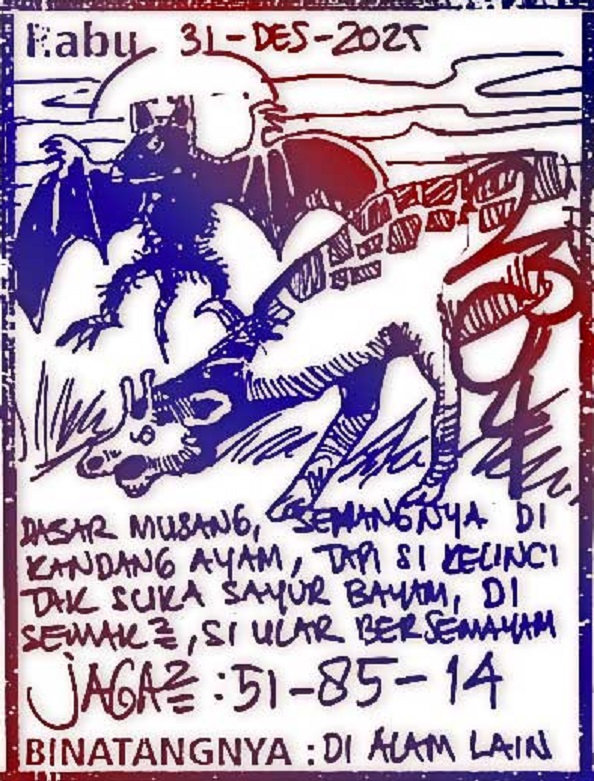 Rabu 31-DES-2025
DASAR MUSANG, SEMANGNYA DI
KANDANG AYAM, TAPI SI KELINCI
TAK SUKA SAYUR BAYAM, DI
SEMAK2, SI ULAR BERSEMAYAM
JAGA2 : 51-85-14
BINATANGNYA : DI ALAM LAIN